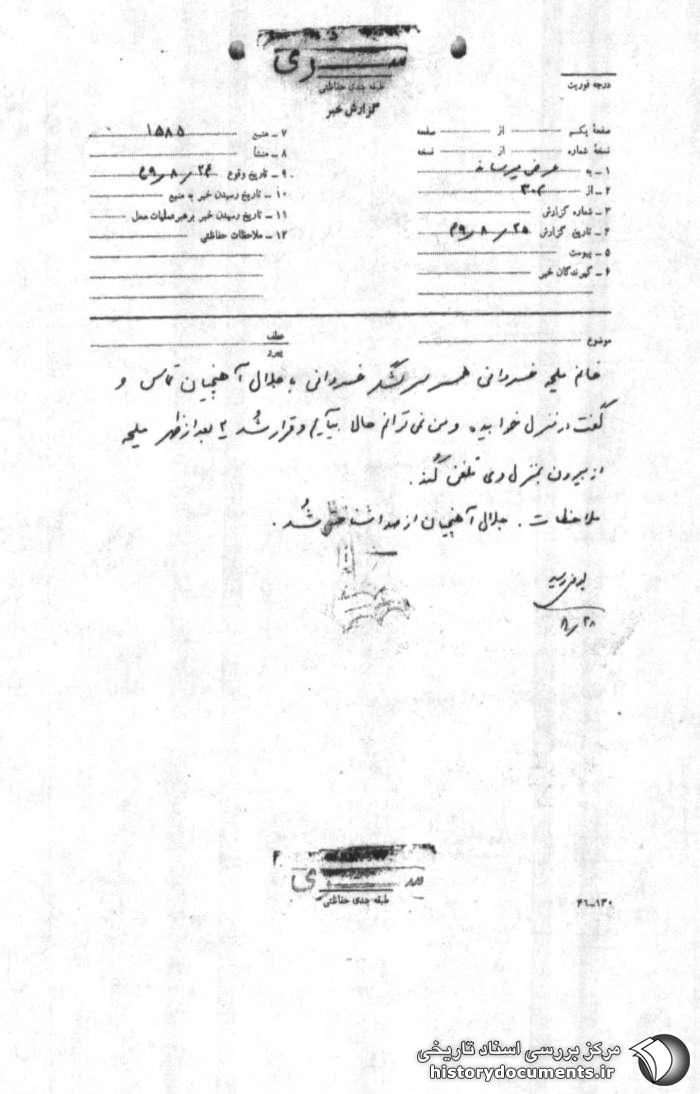 سری
طبقه بندی حفاظتی
گزارش خبر
درجه فوریت
صفحهٔ یکم از صفحه
نسخهٔ شماره از نسخه
۱ ـ به عرض میرساند
۲ ـ از ۳۰۲
۳ ـ شماره گزارش
۴ ـ تاریخ گزارش ۲۵ ر ۸ ر ۴۹
۵ ـ پیوست
۶ ـ گیرندگان خبر
۷ ـ منبع ۱۵۸۵
۸ ـ منشأ
۹ ـ تاریخ وقوع ۲۴ ر ۸ ر ۴۹
۱۰ ـ تاریخ رسیدن خبر به منبع
۱۱ ـ تاریخ رسیدن خبر برهبر عملیات محل
۱۲ ـ ملاحظات حفاظتی
موضوع
عطف
پیرو
خانم ملیحه خسروانی همسر سرلشگر خسروانی با جلال آهنچیان تماس و
گفت در منزل خوابیده و من نمی توانم حالا بیایم و قرار شد ۴ بعد از ظهر ملیحه
از بیرون بمنزل وی تلفن کند.
ملاحظات . جلال آهنچیان از صدا شناخته شد .
بعرض رسید
۲۸ ر ۸
سری
طبقه بندی حفاظتی
۴۶-۱۳۰
مرکز بررسی اسناد تاریخی
historydocuments.ir